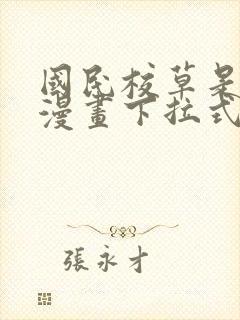 國民校草是
漫畫下拉式
張永才